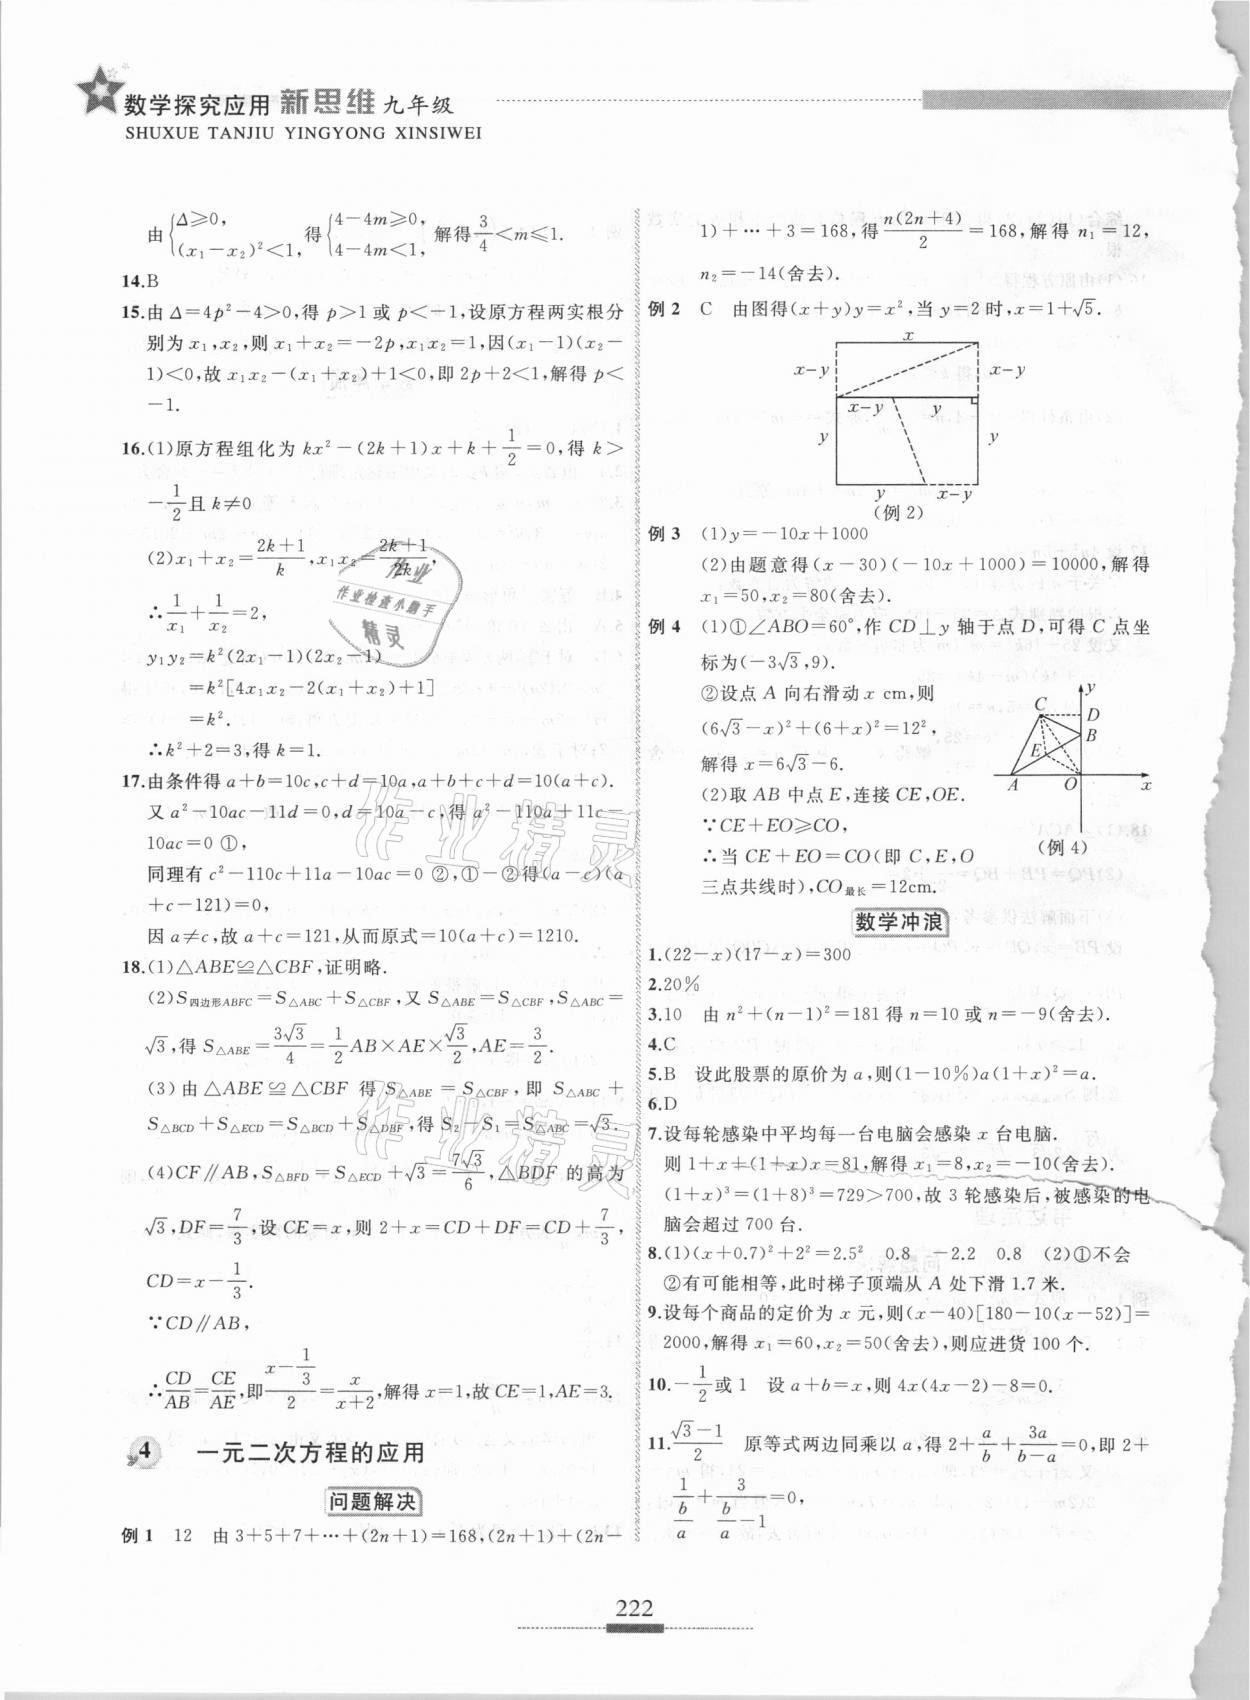 数学探究应用 新思维 九年级
SHUXUE TANJIU YINGYONG XINSIWEI
由{Δ≥0, (x₁-x₂)²<1, 得{4-4m≥0, 4-4m<1, 解得3/4<m≤1.
14.B
15.由Δ=4p²-4>0,得p>1或p<-1,设原方程两实根分
别为x₁,x₂,则x₁+x₂=-2p,x₁x₂=1,因(x₁-1)(x₂-
1)<0,故x₁x₂-(x₁+x₂)+1<0,即2p+2<1,解得p<
-1.
16.(1)原方程组化为kx²-(2k+1)x+k+1/2=0,得k>
-1/2且k≠0
(2)x₁+x₂=(2k+1)/k,x₁x₂=(2k+1)/2k,
∴1/x₁+1/x₂=2,
y₁y₂=k²(2x₁-1)(2x₂-1)
=k²[4x₁x₂-2(x₁+x₂)+1]
=k².
∴k²+2=3,得k=1.
17.由条件得a+b=10c,c+d=10a,a+b+c+d=10(a+c).
又a²-10ac-11d=0,d=10a-c,得a²-110a+11c-
10ac=0 ①,
同理有c²-110c+11a-10ac=0 ②,①-②得(a-c)(a
+c-121)=0,
因a≠c,故a+c=121,从而原式=10(a+c)=1210.
18.(1)△ABE≌△CBF,证明略.
(2)S四边形ABFC=S△ABC+S△CBF,又S△ABE=S△CBF,S△ABC=
√3,得S△ABE=3√3/4=1/2AB×AE×√3/2,AE=3/2.
(3)由△ABE≌△CBF得S△ABE=S△CBF,即S△ABC+
S△BCD+S△ECD=S△BCD+S△DBF,得S₂-S₁=S△ABC=√3.
(4)CF∥AB,S△BFD=S△ECD+√3=7√3/6,△BDF的高为
√3,DF=7/3,设CE=x,则2+x=CD+DF=CD+7/3,
CD=x-1/3.
∵CD∥AB,
∴CD/AB=CE/AE,即(x-1/3)/2=x/(x+2),解得x=1,故CE=1,AE=3.
4 一元二次方程的应用
问题解决
例1 12 由3+5+7+⋯+(2n+1)=168,(2n+1)+(2n-
1)+⋯+3=168,得n(2n+4)/2=168,解得n₁=12,
n₂=-14(舍去).
例2 C 由图得(x+y)y=x²,当y=2时,x=1+√5.
x
x-y x-y
x-y y
y y
y x-y
(例2)
例3 (1)y=-10x+1000
(2)由题意得(x-30)(-10x+1000)=10000,解得
x₁=50,x₂=80(舍去).
例4 (1)①∠ABO=60°,作CD⊥y轴于点D,可得C点坐
标为(-3√3,9).
②设点A向右滑动x cm,则
(6√3-x)²+(6+x)²=12²,
解得x=6√3-6.
(2)取AB中点E,连接CE,OE.
∵CE+EO≥CO,
∴当CE+EO=CO(即C,E,O
三点共线时),CO最长=12cm.
y
C D
B
E
A O x
(例4)
数学冲浪
1.(22-x)(17-x)=300
2.20%
3.10 由n²+(n-1)²=181得n=10或n=-9(舍去).
4.C
5.B 设此股票的原价为a,则(1-10%)a(1+x)²=a.
6.D
7.设每轮感染中平均每一台电脑会感染x台电脑.
则1+x+(1+x)x=81,解得x₁=8,x₂=-10(舍去).
(1+x)³=(1+8)³=729>700,故3轮感染后,被感染的电
脑会超过700台.
8.(1)(x+0.7)²+2²=2.5² 0.8 -2.2 0.8 (2)①不会
②有可能相等,此时梯子顶端从A处下滑1.7米.
9.设每个商品的定价为x元,则(x-40)[180-10(x-52)]=
2000,解得x₁=60,x₂=50(舍去),则应进货100个.
10.-1/2或1 设a+b=x,则4x(4x-2)-8=0.
11.(√3-1)/2 原等式两边同乘以a,得2+a/b+3a/(b-a)=0,即2+
1/(b/a)+3/(b/a-1)=0,
222
作业
作业检查小助手
精灵
作业精灵
作业精灵